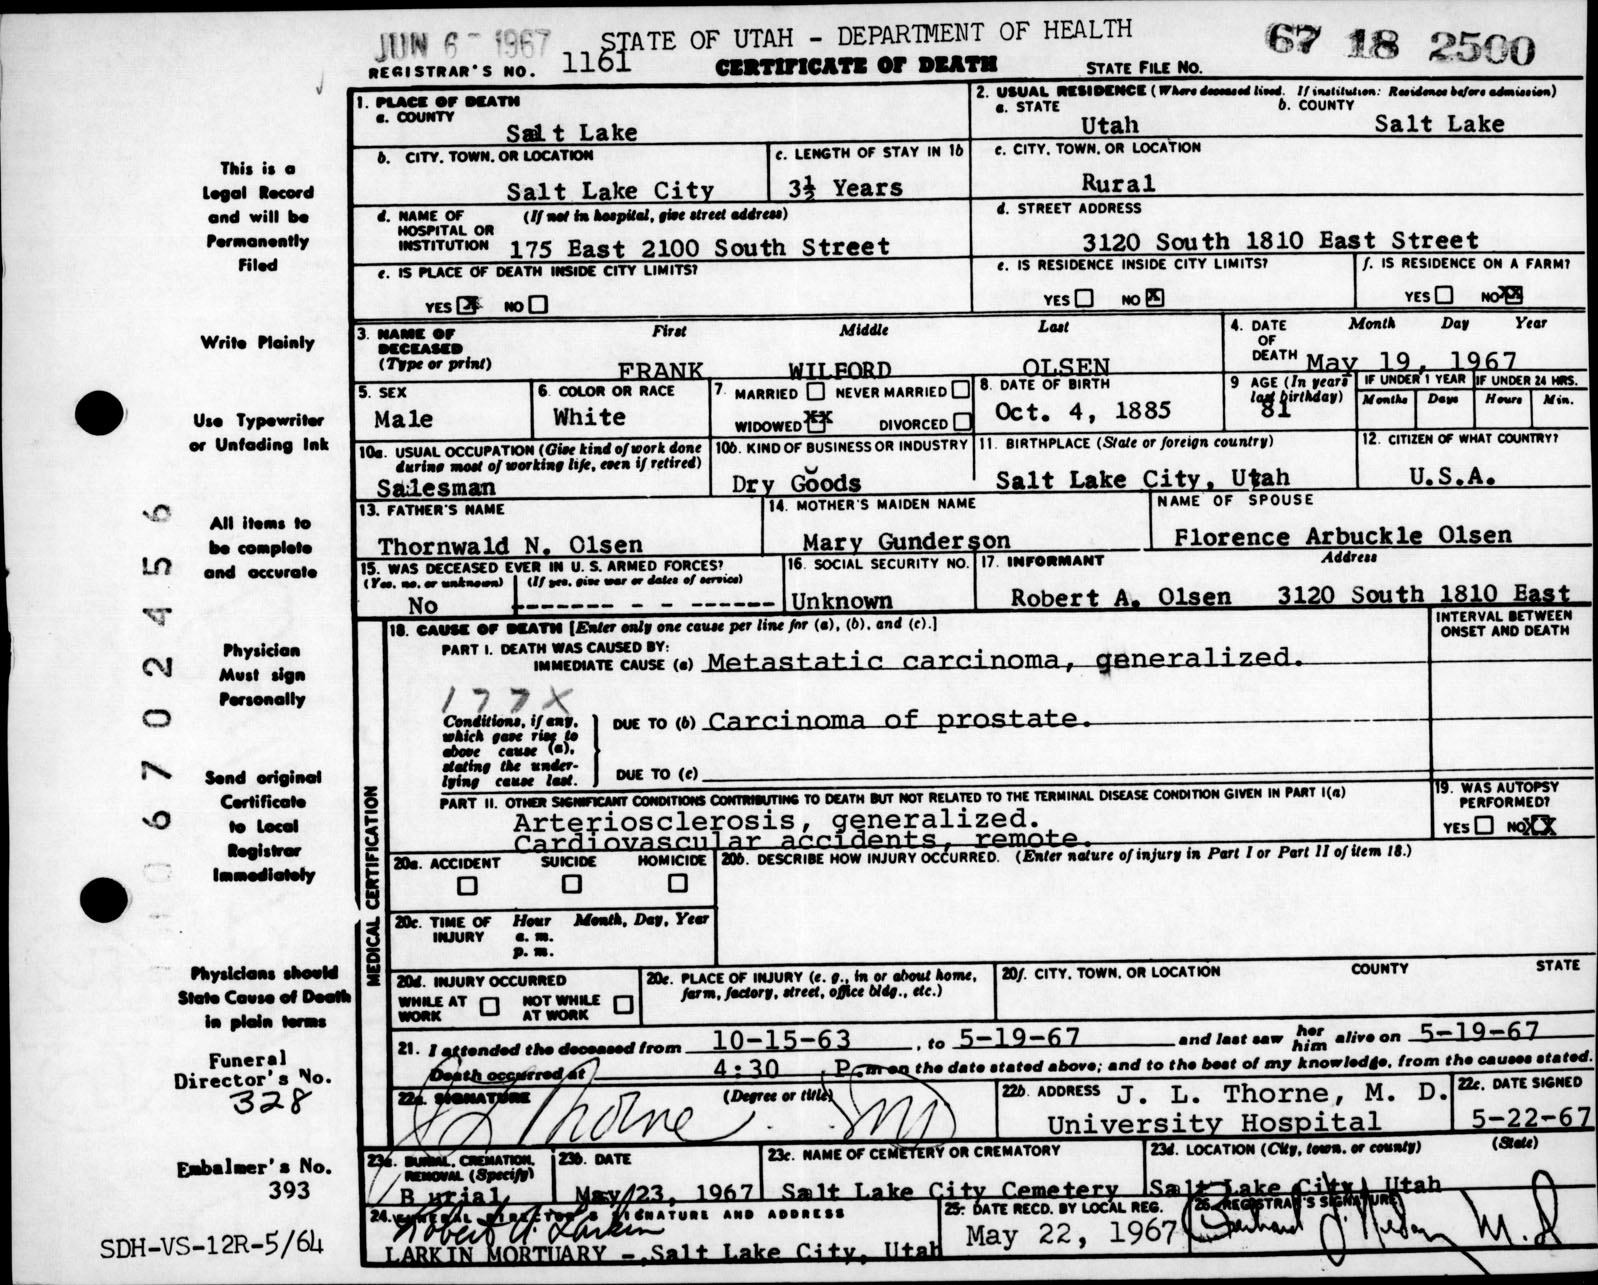 JUN 6 - 1967 STATE OF UTAH - DEPARTMENT OF HEALTH 67 18 2500
REGISTRAR'S NO. 1161 CERTIFICATE OF DEATH STATE FILE NO.
This is a
Legal Record
and will be
Permanently
Filed
Write Plainly
Use Typewriter
or Unfading Ink
All items to
be complete
and accurate
Physician
Must sign
Personally
Send original
Certificate
to Local
Registrar
Immediately
Physicians should
State Cause of Death
in plain terms
Funeral
Director's No.
328
Embalmer's No.
393
SDH-VS-12R-5/64
06702456
1. PLACE OF DEATH
a. COUNTY
Salt Lake
2. USUAL RESIDENCE (Where deceased lived. If institution: Residence before admission)
a. STATE b. COUNTY
Utah Salt Lake
b. CITY, TOWN, OR LOCATION
Salt Lake City
c. LENGTH OF STAY IN 1b
3½ Years
c. CITY, TOWN, OR LOCATION
Rural
d. NAME OF HOSPITAL OR INSTITUTION (If not in hospital, give street address)
175 East 2100 South Street
d. STREET ADDRESS
3120 South 1810 East Street
e. IS PLACE OF DEATH INSIDE CITY LIMITS?
YES X NO
e. IS RESIDENCE INSIDE CITY LIMITS?
YES NO X
f. IS RESIDENCE ON A FARM?
YES NO XX
3. NAME OF DECEASED (Type or print) First Middle Last
FRANK WILFORD OLSEN
4. DATE OF DEATH Month Day Year
May 19, 1967
5. SEX
Male
6. COLOR OR RACE
White
7. MARRIED NEVER MARRIED
WIDOWED XX DIVORCED
8. DATE OF BIRTH
Oct. 4, 1885
9 AGE (In years last birthday)
81
IF UNDER 1 YEAR IF UNDER 24 HRS.
Months Days Hours Min.
10a. USUAL OCCUPATION (Give kind of work done during most of working life, even if retired)
Salesman
10b. KIND OF BUSINESS OR INDUSTRY
Dry Goods
11. BIRTHPLACE (State or foreign country)
Salt Lake City, Utah
12. CITIZEN OF WHAT COUNTRY?
U.S.A.
13. FATHER'S NAME
Thornwald N. Olsen
14. MOTHER'S MAIDEN NAME
Mary Gunderson
NAME OF SPOUSE
Florence Arbuckle Olsen
15. WAS DECEASED EVER IN U. S. ARMED FORCES?
(Yes, no, or unknown) (If yes, give war or dates of service)
No ------- - - ------
16. SOCIAL SECURITY NO.
Unknown
17. INFORMANT Address
Robert A. Olsen 3120 South 1810 East
MEDICAL CERTIFICATION
18. CAUSE OF DEATH [Enter only one cause per line for (a), (b), and (c).]
INTERVAL BETWEEN ONSET AND DEATH
PART I. DEATH WAS CAUSED BY:
IMMEDIATE CAUSE (a) Metastatic carcinoma, generalized.
177X
Conditions, if any, which gave rise to above cause (a), stating the underlying cause last.
DUE TO (b) Carcinoma of prostate.
DUE TO (c)
PART II. OTHER SIGNIFICANT CONDITIONS CONTRIBUTING TO DEATH BUT NOT RELATED TO THE TERMINAL DISEASE CONDITION GIVEN IN PART I(a)
Arteriosclerosis, generalized.
Cardiovascular accidents, remote.
19. WAS AUTOPSY PERFORMED?
YES NO XX
20a. ACCIDENT SUICIDE HOMICIDE
20b. DESCRIBE HOW INJURY OCCURRED. (Enter nature of injury in Part I or Part II of item 18.)
20c. TIME OF INJURY Hour Month, Day, Year
a. m.
p. m.
20d. INJURY OCCURRED
WHILE AT WORK NOT WHILE AT WORK
20e. PLACE OF INJURY (e. g., in or about home, farm, factory, street, office bldg., etc.)
20f. CITY, TOWN, OR LOCATION COUNTY STATE
21. I attended the deceased from 10-15-63, to 5-19-67 and last saw her him alive on 5-19-67
Death occurred at 4:30 P.m on the date stated above; and to the best of my knowledge, from the causes stated.
22a. SIGNATURE (Degree or title)
J L Thorne. MD
22b. ADDRESS J. L. Thorne, M. D.
University Hospital
22c. DATE SIGNED
5-22-67
23a. BURIAL, CREMATION, REMOVAL (Specify)
Burial
23b. DATE
May 23, 1967
23c. NAME OF CEMETERY OR CREMATORY
Salt Lake City Cemetery
23d. LOCATION (City, town, or county) (State)
Salt Lake City, Utah
24. FUNERAL DIRECTOR'S SIGNATURE AND ADDRESS
Robert A. Larkin
LARKIN MORTUARY - Salt Lake City, Utah
25. DATE RECD. BY LOCAL REG.
May 22, 1967
26. REGISTRAR'S SIGNATURE
M.D.